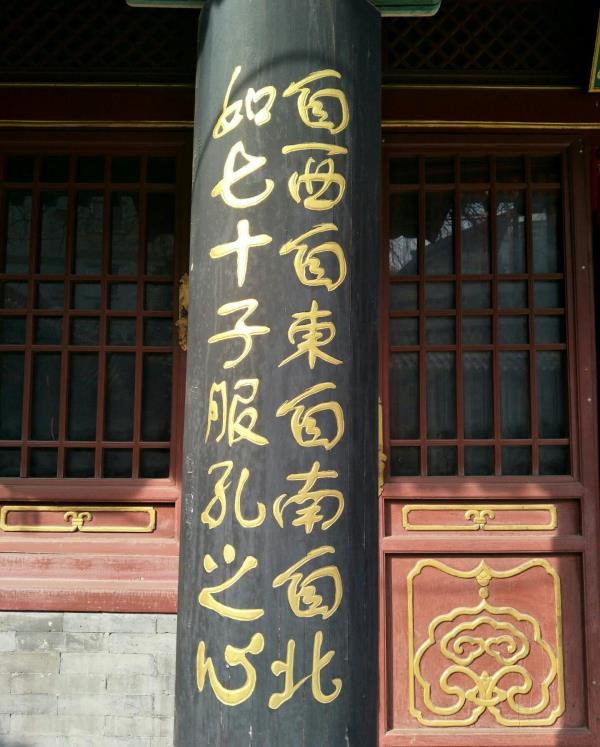 自西自東自南自北
如七十子服孔之心